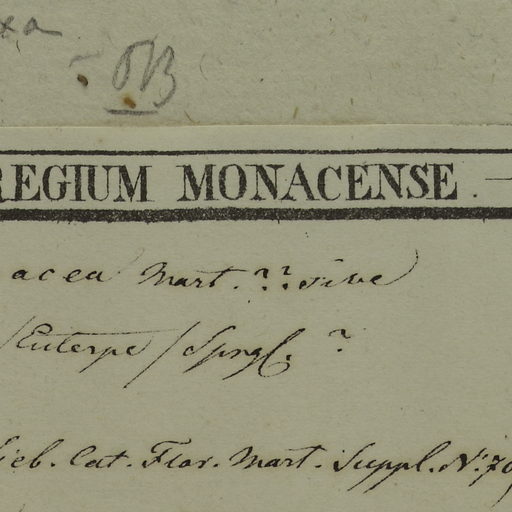 xa
REGIUM MONACENSE.
acea Mart. ?? sive
/Euterpe/ Sprgl. ?
Cat. Flor. Mart. Suppl. N.